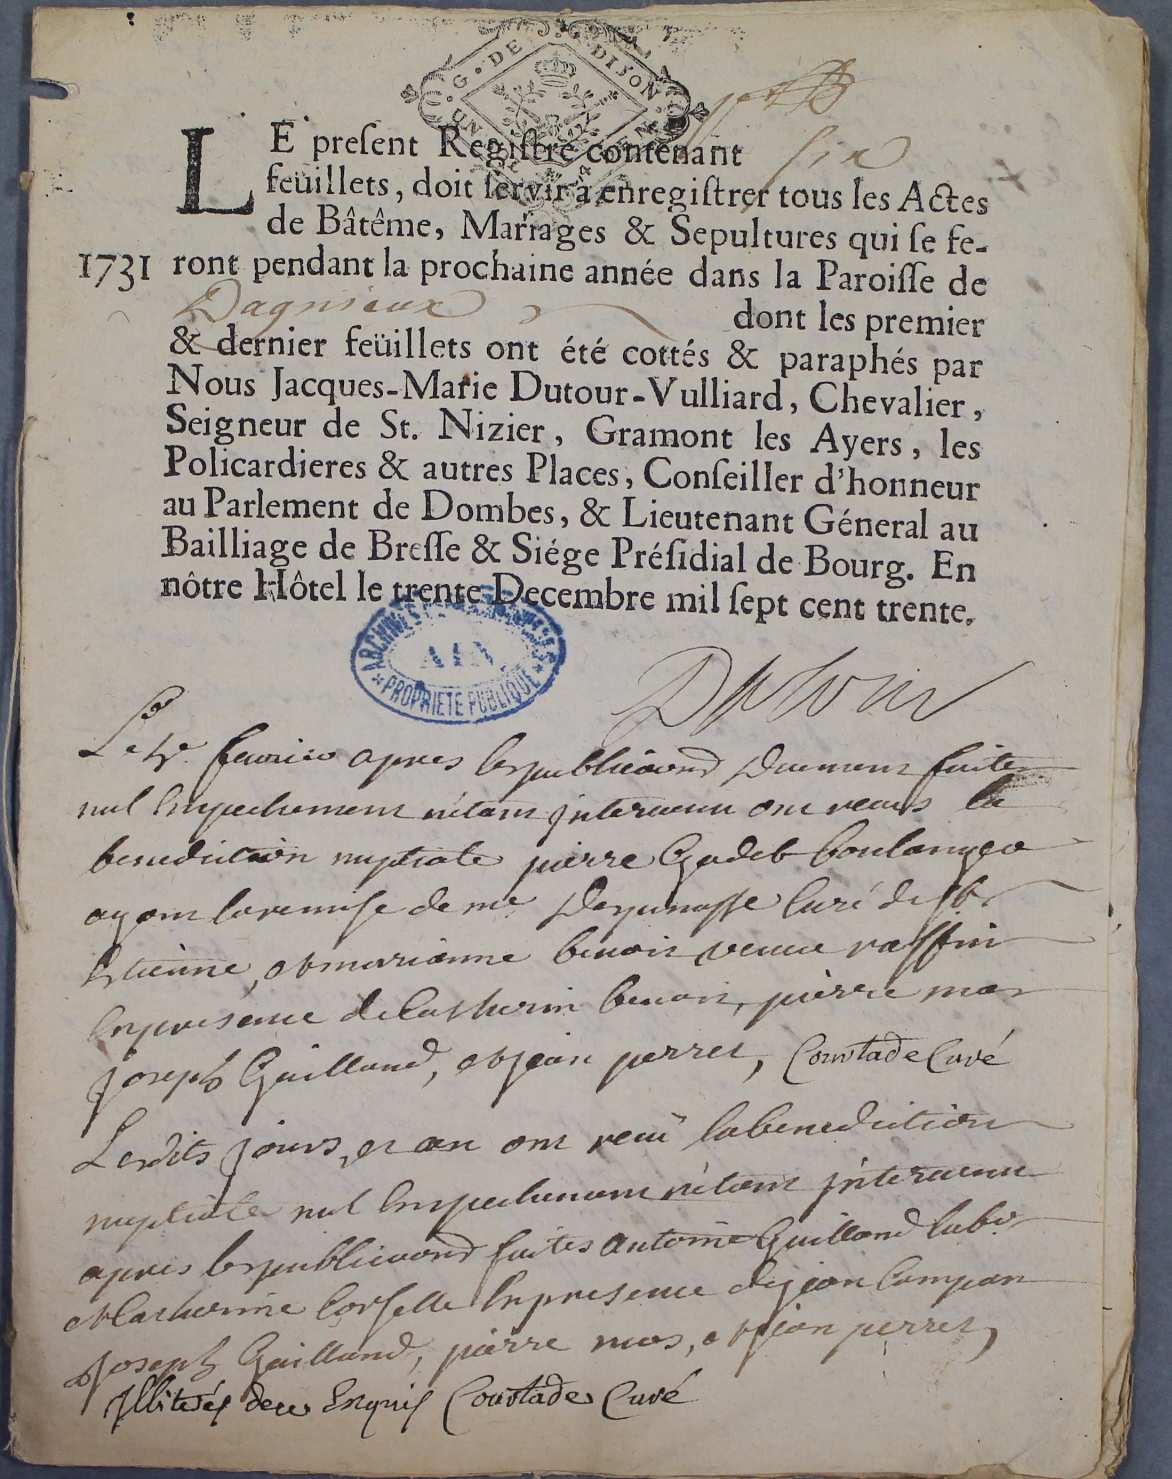 G. DE DIJON
LE preſent Regiſtre contenant six
feüillets, doit ſervir à enregiſtrer tous les Actes
de Bâtême, Mariages & Sepultures qui ſe fe-
1731 ront pendant la prochaine année dans la Paroiſſe de
Dagnieux dont les premier
& dernier feüillets ont été cottés & paraphés par
Nous Jacques-Marie Dutour-Vulliard, Chevalier,
Seigneur de St. Nizier, Gramont les Ayers, les
Policardieres & autres Places, Conſeiller d'honneur
au Parlement de Dombes, & Lieutenant Géneral au
Bailliage de Breſſe & Siége Préſidial de Bourg. En
nôtre Hôtel le trente Decembre mil ſept cent trente.
ARCHIVES
AIN
PROPRIETE PUBLIQUE
Dutour
Le fevrier apres les publicaons Duement faites
nul Empechement n'etant jntervenu ont receus la
benediction nuptiale pierre Gadet boulanger
ayant la remise de mr curé de st
Etienne, et marianne benoit veuve raffin
En presence de Catherin benoit, pierre mas
joseph Guilland, et jean perret, Courtade Curé
Lesdits jours, et an ont receu la benediction
nuptiale nul Empechement n'etant jntervenu
apres les publicaons faites Antoine Guilland labr
et Catherine Corselle En presence de jean Compan
Joseph Guilland, pierre mas, et jean perret,
jllitérés de ce Enquis Courtade Curé